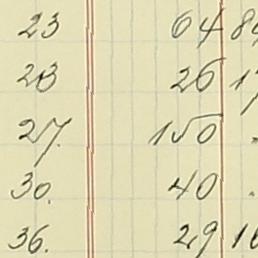 23 64 84
23 26 17
27. 150
30. 40
36. 29 16